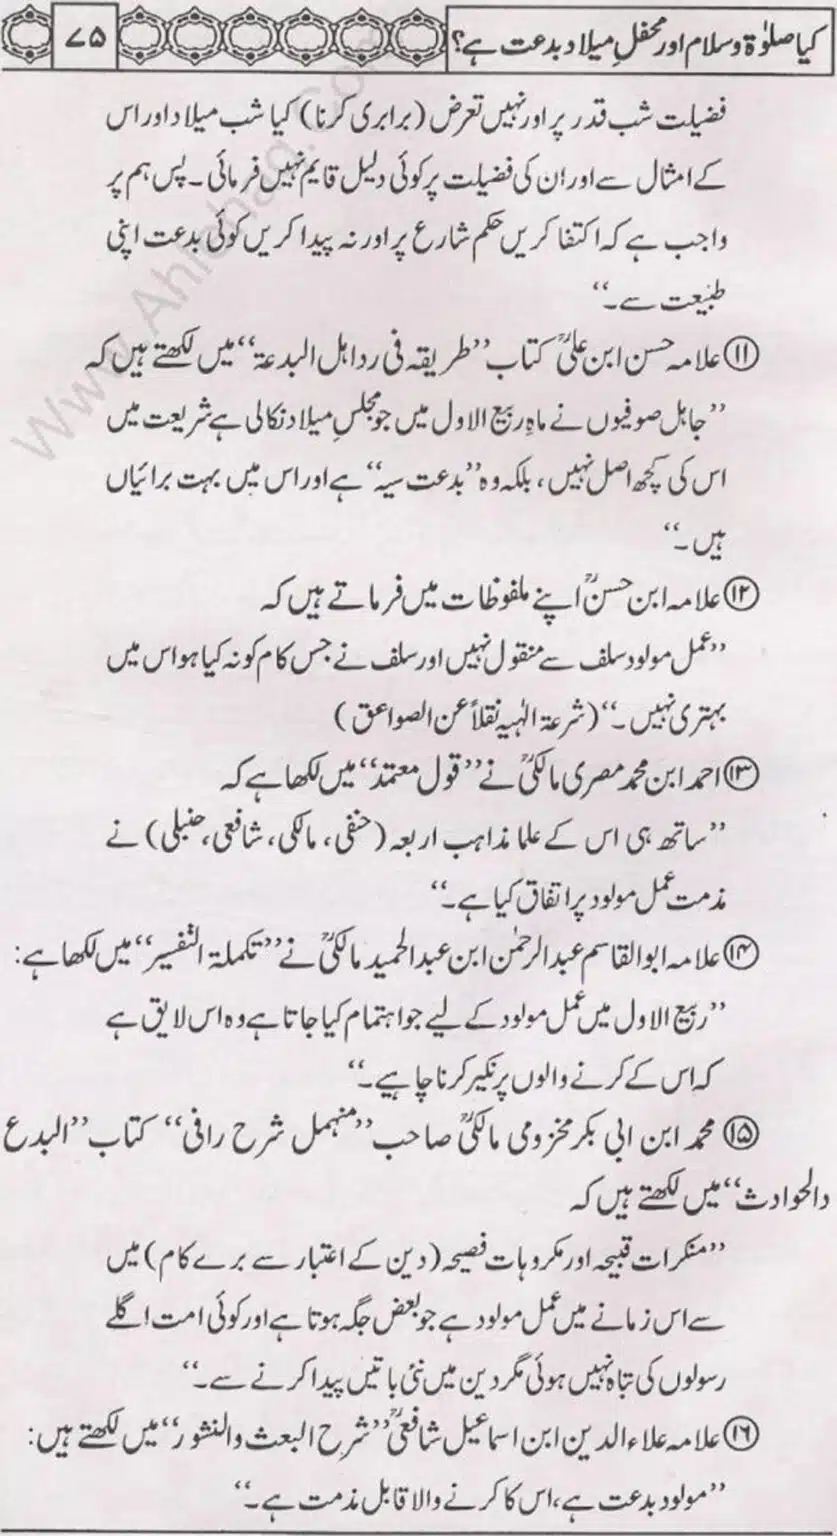 کیا صلوٰۃ و سلام اور محفلِ میلاد بدعت ہے؟ ۷۵
فضیلت شب قدر پر اور نہیں تعرض (برابری کرنا) کیا شب میلاد اور اس
کے امثال سے اور اُن کی فضیلت پر کوئی دلیل قایم نہیں فرمائی۔ پس ہم پر
واجب ہے کہ اکتفا کریں حکم شارع پر اور نہ پیدا کریں کوئی بدعت اپنی
طبیعت سے۔‘‘
⑪ علامہ حسن ابن علیؒ کتاب ’’طریقہ فی رد اہل البدعۃ‘‘ میں لکھتے ہیں کہ
’’جاہل صوفیوں نے ماہِ ربیع الاول میں جو مجلسِ میلاد نکالی ہے شریعت میں
اس کی کچھ اصل نہیں، بلکہ وہ ’’بدعت سیہ‘‘ ہے اور اس میں بہت برائیاں
ہیں۔‘‘
⑫ علامہ ابن حسنؒ اپنے ملفوظات میں فرماتے ہیں کہ
’’عمل مولود سلف سے منقول نہیں اور سلف نے جس کام کو نہ کیا ہو اس میں
بہتری نہیں۔‘‘ (شرعۃ الٰہیہ نقلاً عن الصواعق)
⑬ احمد ابن محمد مصری مالکیؒ نے ’’قول معتمد‘‘ میں لکھا ہے کہ
’’ساتھ ہی اس کے علما مذاہب اربعہ (حنفی، مالکی، شافعی، حنبلی) نے
مذمت عمل مولود پر اتفاق کیا ہے۔‘‘
⑭ علامہ ابوالقاسم عبدالرحمٰن ابن عبدالحمید مالکیؒ نے ’’تکملۃ التفسیر‘‘ میں لکھا ہے:
’’ربیع الاول میں عمل مولود کے لیے جو اہتمام کیا جاتا ہے وہ اس لایق ہے
کہ اس کے کرنے والوں پر نکیر کرنا چاہیے۔‘‘
⑮ محمد ابن ابی بکر مخزومی مالکیؒ صاحب ’’منہمل شرح رافی‘‘ کتاب ’’البدع
دالحوادث‘‘ میں لکھتے ہیں کہ
’’منکرات قبیحہ اور مکروہات فصیحہ (دین کے اعتبار سے برے کام) میں
سے اس زمانے میں عمل مولود ہے جو بعض جگہ ہوتا ہے اور کوئی امت اگلے
رسولوں کی تباہ نہیں ہوئی مگر دین میں نئی باتیں پیدا کرنے سے۔‘‘
⑯ علامہ علاء الدین ابن اسماعیل شافعیؒ ’’شرح البعث والنشور‘‘ میں لکھتے ہیں:
’’مولود بدعت ہے، اس کا کرنے والا قابل مذمت ہے۔‘‘
www.Ahlehaq.Com